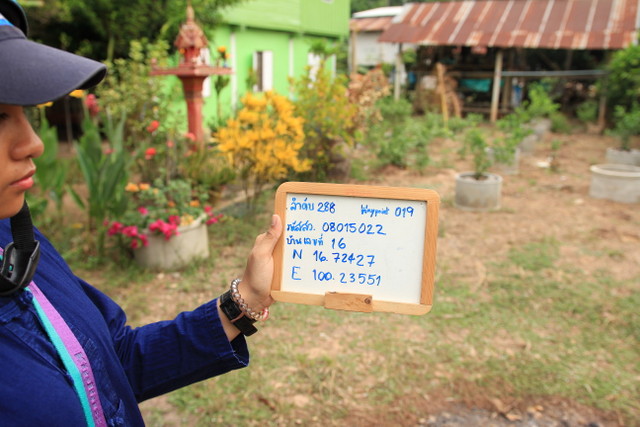 ลำดับ 288 Waypoint 019
รหัสสว. 08015022
บ้านเลขที่ 16
N 16.72427
E 100.23551